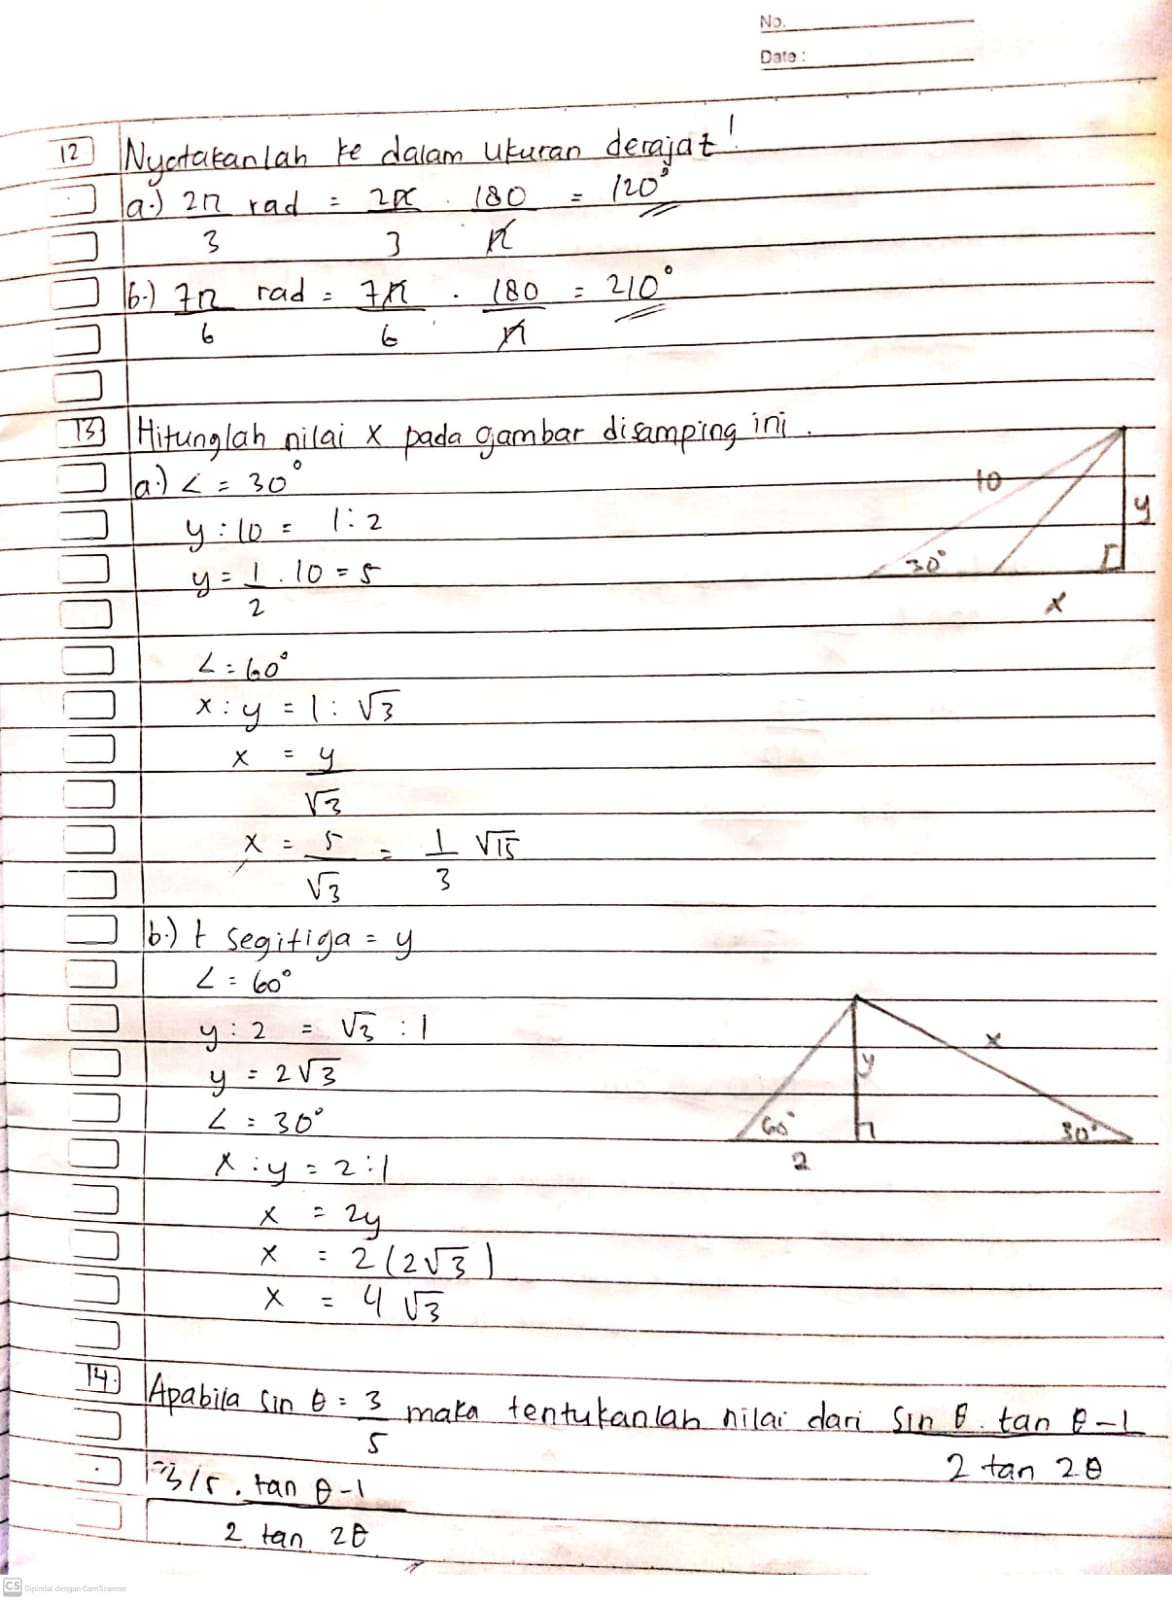 No.
Date :
12 Nyatakanlah ke dalam ukuran derajat!
a.) 2π/3 rad = 2π/3 . 180/π = 120°
b.) 7π/6 rad = 7π/6 . 180/π = 210°
13 Hitunglah nilai x pada gambar disamping ini.
a.) ∠ = 30°
y : 10 = 1 : 2
y = 1/2 . 10 = 5
10
y
30°
x
∠ = 60°
x : y = 1 : √3
x = y/√3
x = 5/√3 = 1/3 √15
b.) t segitiga = y
∠ = 60°
y : 2 = √3 : 1
y = 2√3
∠ = 30°
x : y = 2 : 1
x = 2y
x = 2(2√3)
x = 4√3
x
y
60°
30°
2
14. Apabila sin θ = 3/5 maka tentukanlah nilai dari sin θ . tan θ - 1 / 2 tan 2θ
= 3/5 . tan θ - 1 / 2 tan 2θ
CS Dipindai dengan CamScanner